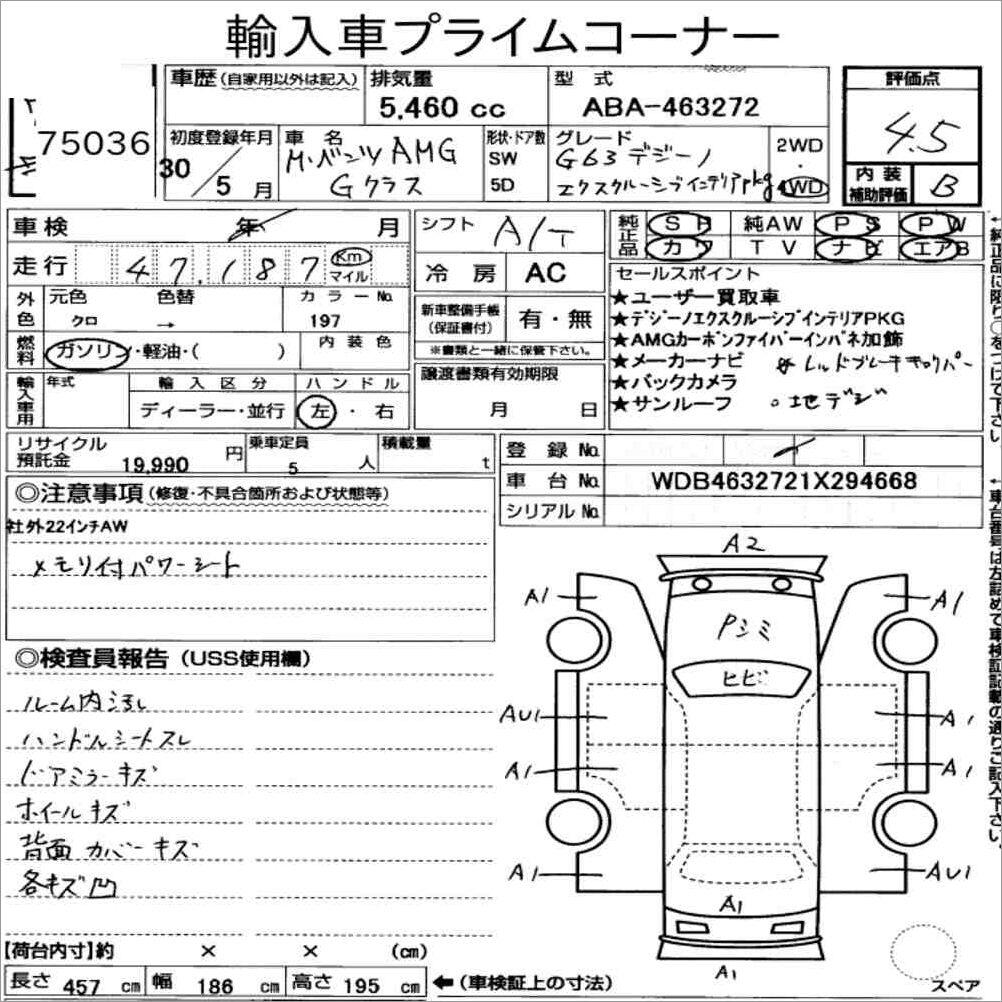 輸入車プライムコーナー
75036
車歴(自家用以外は記入)
排気量
5,460 cc
型 式
ABA-463272
評価点
4.5
初度登録年月
30/5月
車 名
M・ベンツ AMG
Gクラス
形状・ドア数
SW
5D
グレード
G63 デジーノ
エクスクルーシブインテリアpkg
2WD
・
4WD
内 装
補助評価
B
車検 年 月
走行 47,187 Km
マイル
シフト A/T
冷 房 AC
純正品
SR 純AW PS PW
カワ TV ナビ エアB
セールスポイント
★ユーザー買取車
★デジーノエクスクルーシブインテリアPKG
★AMGカーボンファイバーインパネ加飾
★メーカーナビ ☆レッドブレーキキャリパー
★バックカメラ
★サンルーフ ○地デジ
外色
元色 色替 カラーNo.
クロ → 197
燃料
ガソリン・軽油・( )
内 装 色
新車整備手帳
(保証書付)
有・無
※書類と一緒に保管下さい。
輸入車用
年式
輸 入 区 分
ディーラー・並行
ハ ン ド ル
左・右
譲渡書類有効期限
月 日
リサイクル
預託金 19,990 円
乗車定員
5 人
積載量
t
登 録 No.
車 台 No. WDB4632721X294668
シリアル No.
◎注意事項(修復・不具合箇所および状態等)
社外22インチAW
メモリ付パワーシート
◎検査員報告(USS使用欄)
ルーム内汚れ
ハンドルシートスレ
ドアミラーキズ
ホイールキズ
背面カバーキズ
各キズ凹
A2
A1
A1
Pシミ
ヒビ
AU1
A1
A1
A1
A1
AU1
A1
A1
スペア
【荷台内寸】約 × × (cm)
長さ 457 cm 幅 186 cm 高さ 195 cm ←(車検証上の寸法)
←純正品に限り○をつけて下さい。
←車台番号は左詰めて車検証記載の通りご記入下さい。